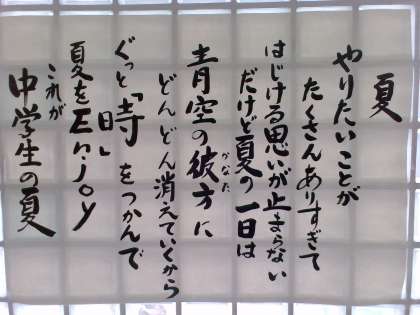 夏
やりたいことが
たくさんありすぎて
はじける思いが止まらない
だけど夏の一日は
青空の彼方に
かなた
どんどん消えていくから
ぐっと「時」をつかんで
夏をEnjoy
これが
中学生の夏